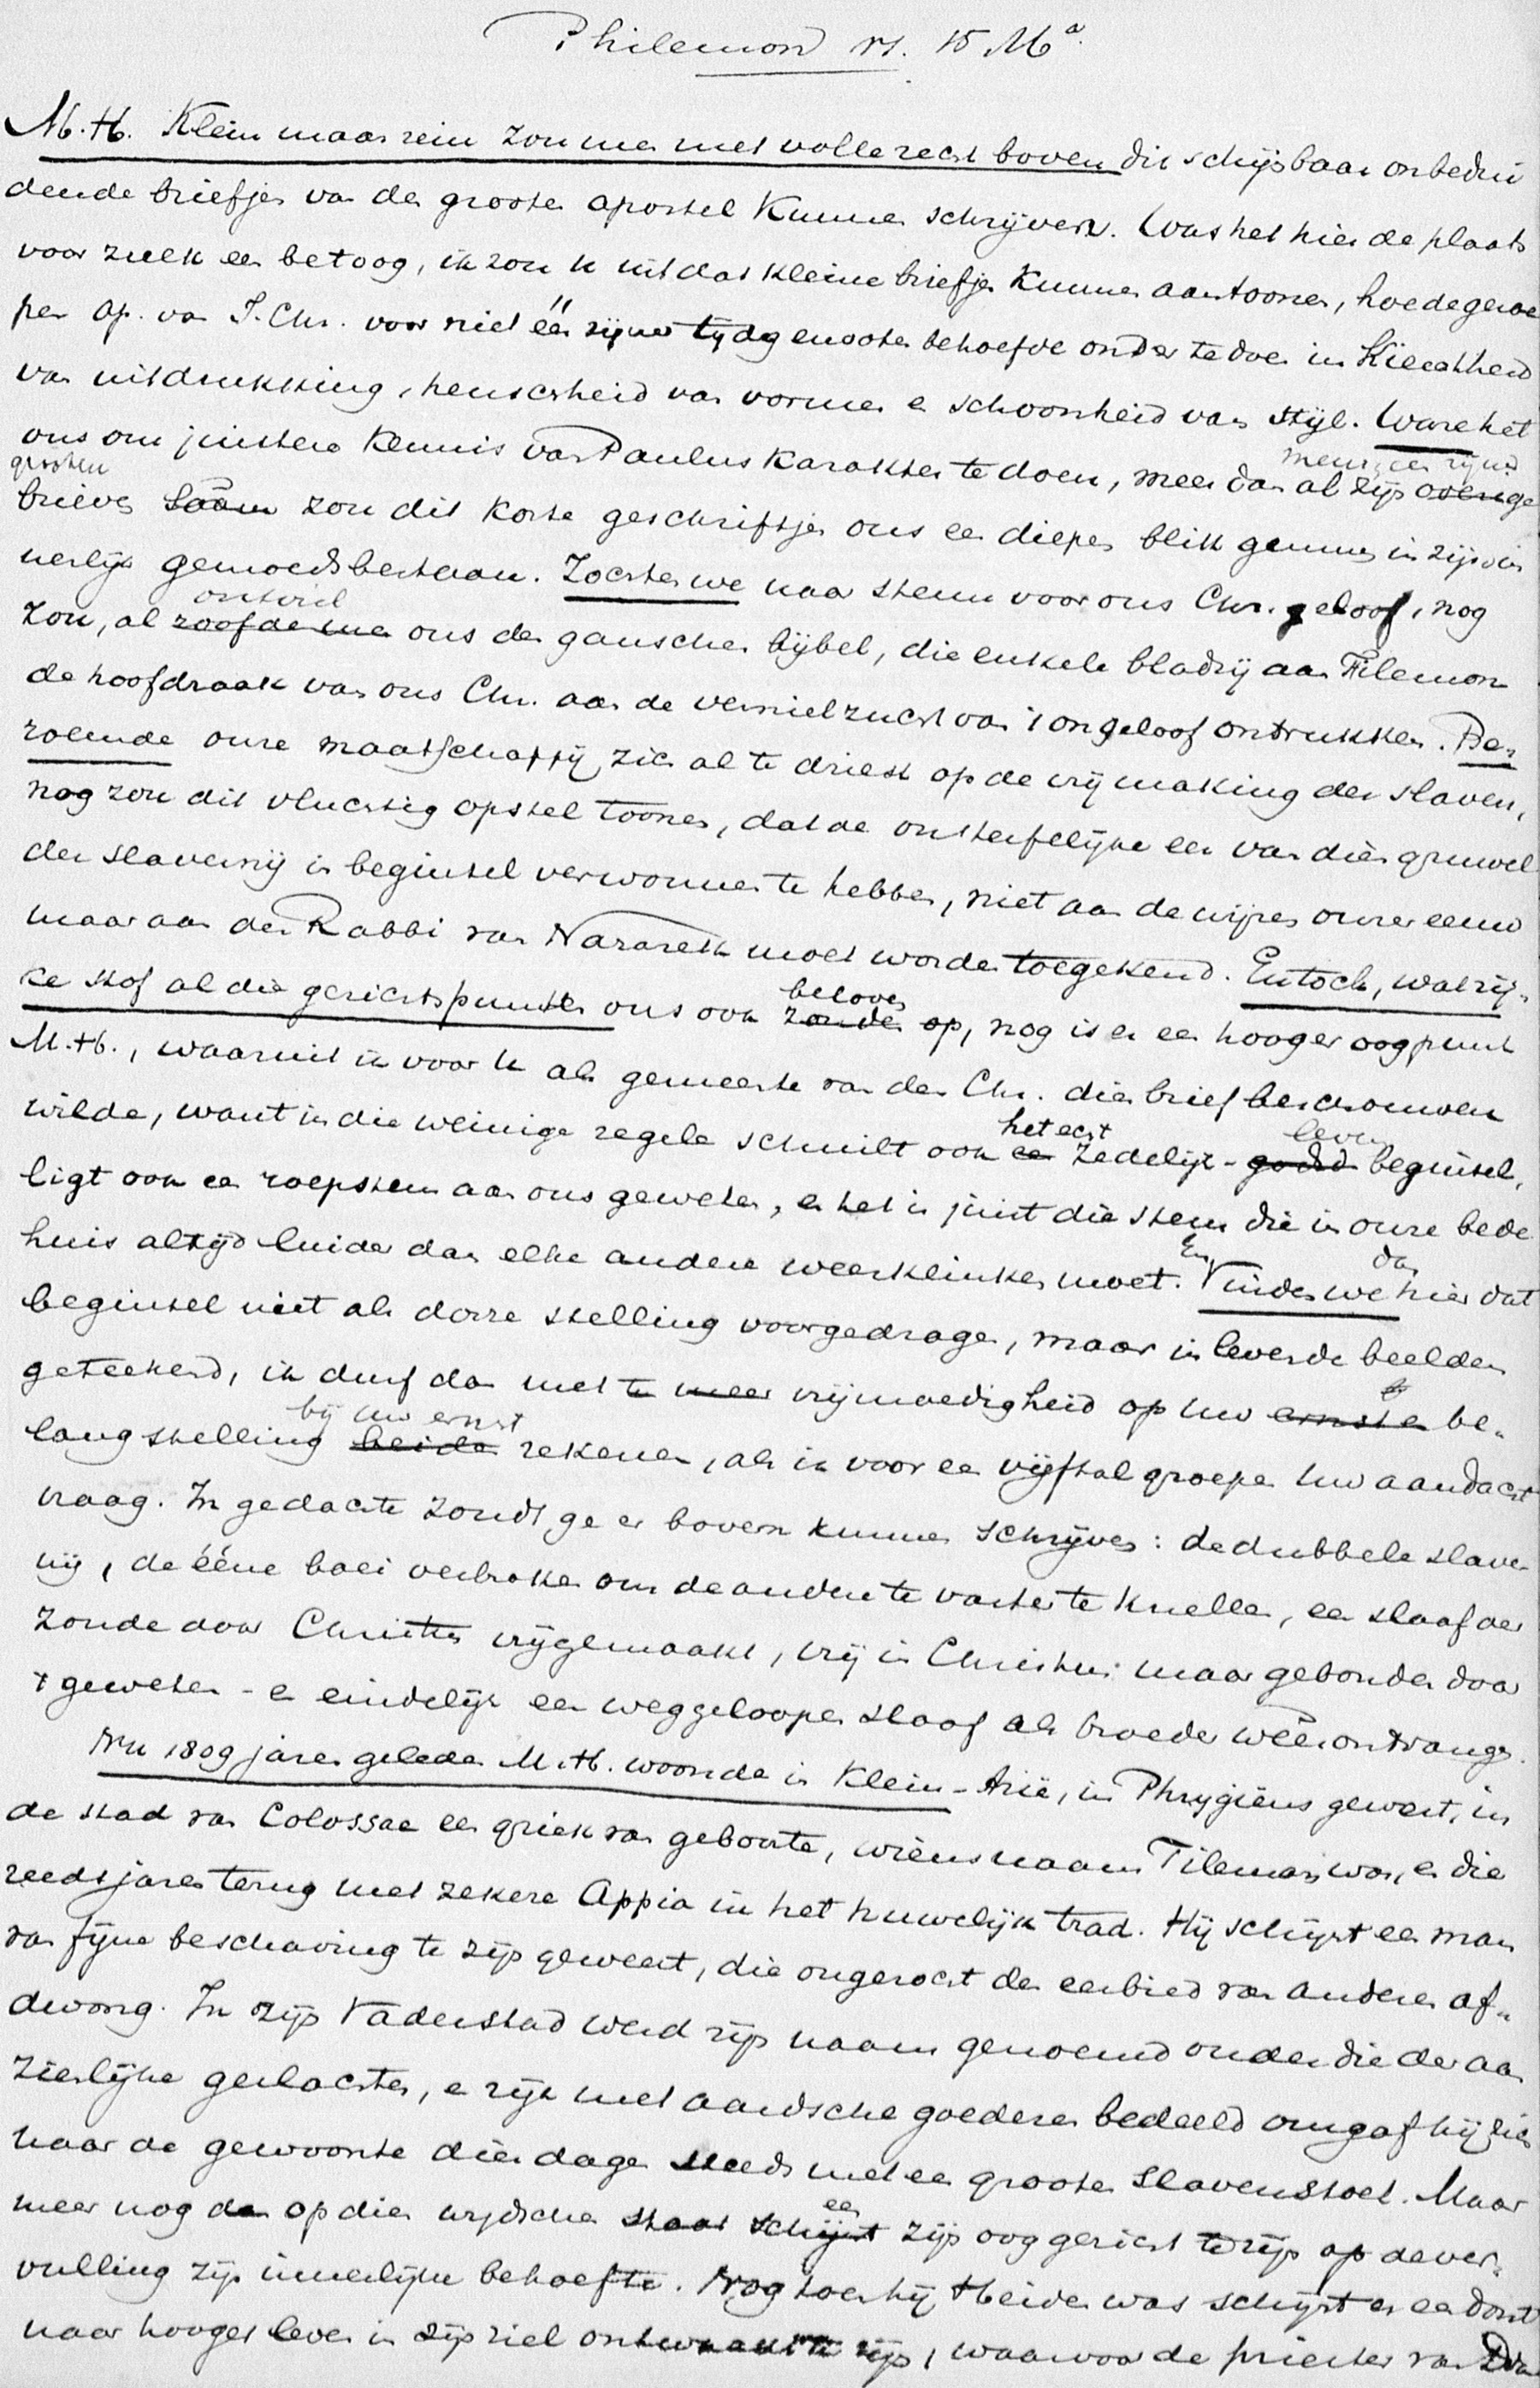 Philemon vs. 15 Mª.
M.H. Klein maar rein zou men met volle recht boven dit schijnbaar onbedui
dende briefjen van den grooten apostel kunnen schrijven. Was het hier de plaats
voor zulk een betoog, ik zou u uit dat kleine briefjen kunnen aantoonen, hoe de geroe
pen Ap. van J. Chr. voor niet één zijner tijdgenooten behoefde onder te doen in kieschheid
van uitdrukking, heuscheid van vormen en schoonheid van stijl. Ware het
ons om juistere kennis van Paulus karakter te doen, meer dan al zijn overige
menige zijner
grooten
brieven saâm zou dit korte geschriftjen ons een diepen blik gunnen in zijn in
nerlijk gemoedsbestaan. Zochten we naar steun voor ons Chr. geloof, nog
ontviel
zou, al roofde men ons den ganschen bijbel, die enkele bladzij aan Filemon
de hoofdzaak van ons Chr. aan de vernielzucht van 't ongeloof ontrukken. Be„
roemde onze maatschappij zich al te driest op de vrijmaking der slaven,
nog zou dit vluchtig opstel toonen, dat de onsterfelijke eer van dien gruwel
der slavernij in beginsel verwonnen te hebben, niet aan de wijzen onzer eeuw
maar aan den Rabbi van Nazareth moet worden toegekend. En toch, wat rij„
beloven
ke stof al die gezichtspunten ons ook zouden op, nog is er een hooger oogpunt
M.H., waaruit ik voor u als gemeente van den Chr. dien brief beschouwen
wilde, want in die weinige regels schuilt ook een zedelijk-godsd beginsel,
het echt
leven
ligt ook een roepstem aan ons geweten, en het is juist die stem die in onze bede
huis altijd luider dan elke andere weerklinken moet. En Vinden we dan hier dat
beginsel niet als dorre stelling voorgedragen, maar in levende beelden
geteekend, ik durf dan met te meer vrijmoedigheid op uw ernst en be„
bij uw ernst
langstelling beide rekenen, als ik voor een vijftal groepen uw aandacht
vraag. In gedachte zoudt ge er boven kunnen schrijven: de dubbele slaver
nij, de ééne boei verbroken om de andere te vaster te knellen, een slaaf der
zonde door Christus vrijgemaakt, vrij in Christus maar gebonden door
't geweten - en eindelijk een weggeloopen slaaf als broeder weêrontvangen.
Nu 1809 jaren geleden M.H. woonde in Klein-Azië, in Phrygiëns gewest, in
de stad van Colossae een griek van geboorte, wiens naam Filemon was, en die
reeds jaren terug met zekere Appia in het huwelijk trad. Hij schijnt een man
van fijne beschaving te zijn geweest, die ongezocht den eerbied van anderen af„
dwong. In zijn Vaderstad werd zijn naam genoemd onder die der aan
zienlijke geslachten, en rijk met aardsche goederen bedeeld omgaf hij zich
naar de gewoonte dier dagen steeds met een grooten slavenstoet. Maar
meer nog dan op dien wijdschen staat schijnt zijn oog gericht te zijn op de ver„
vulling zijn innerlijke behoefte. Nog toen hij Heiden was schijnt er een dorst
naar hooger leven in zijn ziel ontwaakt te zijn, waarvoor de priester van